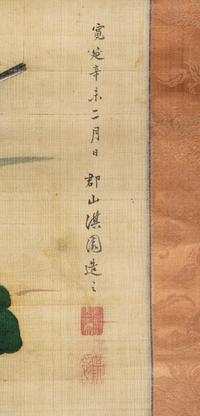 寛延辛未二月日 郡山淇園造之